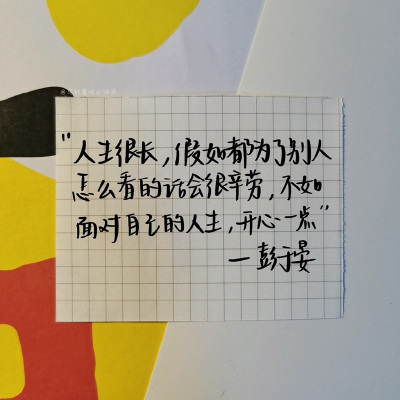 “人生很长,假如都为了别人
怎么看的话会很辛劳,不如
面对自己的人生,开心一点”
—彭于晏